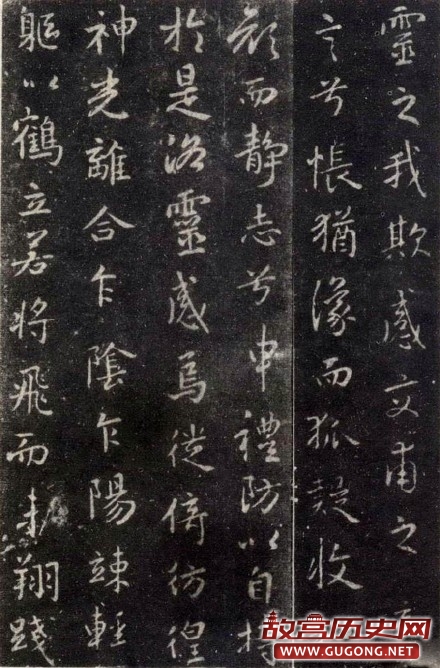 靈之我欺感交甫之
言兮悵猶豫而狐疑收
顔而静志兮申禮防以自持
於是洛靈感焉徙倚彷徨
神光離合乍陰乍陽竦輕
軀以鶴立若將飛而未翔踐
故宫历史网
WWW.GUGONG.NET